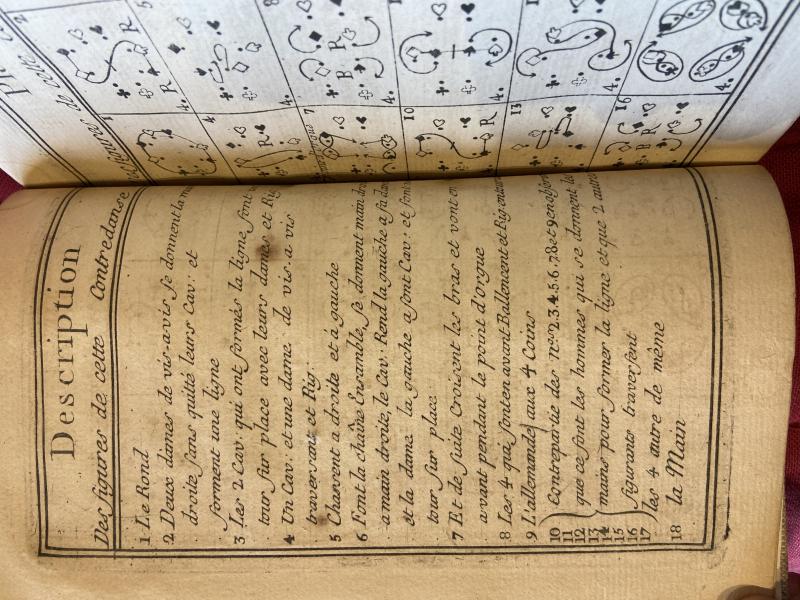 Description
Des figures de cette Contredanse
1 Le Rond
2 Deux dames de vis-a-vis se donnent la
droite sans quitté leurs Cav: et
forment une ligne
3 Les 2 Cav: qui ont formés la ligne font
tour sur place avec leurs dames et Rig
4 Un Cav: et une dame de vis-a vis
traversant et Rig:
5 Chassent a droite et à gauche
6 Font la chaîne Ensamble, se donnent main
a main droite, le Cav: Rend la gauche a sa
et la dame la gauche a sont Cav: et
tour sur place
7 Et de suite Croisent les bras et vont en
avant pendant le point d'orgue
8 Les 4 qui sont en avant Ballencent et Rig
9 L'allemande aux 4 Coins
10 Contrepartie des nos 2, 3, 4, 5, 6, 7, 8 et 9
11 que ce sont les hommes qui se donnent
12 mains pour former la ligne et que 2
13
14
15 figurants traversent
16
17 les 4 autre de même
18 la Main
1
2
R
4.
5
4.
7
8
R
R
B
4.
10
R
4.
13
4.
16
B
R
4.